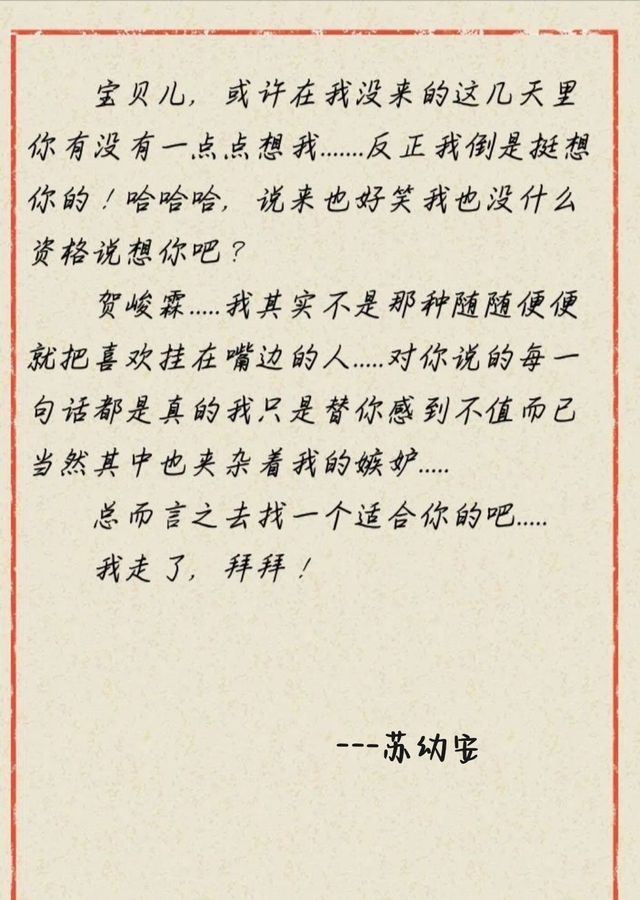 宝贝儿，或许在我没来的这几天里
你有没有一点点想我.......反正我倒是挺想
你的！哈哈哈，说来也好笑我也没什么
资格说想你吧？
贺峻霖.....我其实不是那种随随便便
就把喜欢挂在嘴边的人.....对你说的每一
句话都是真的我只是替你感到不值而已
当然其中也夹杂着我的嫉妒.....
总而言之去找一个适合你的吧.....
我走了，拜拜！
---苏幼安